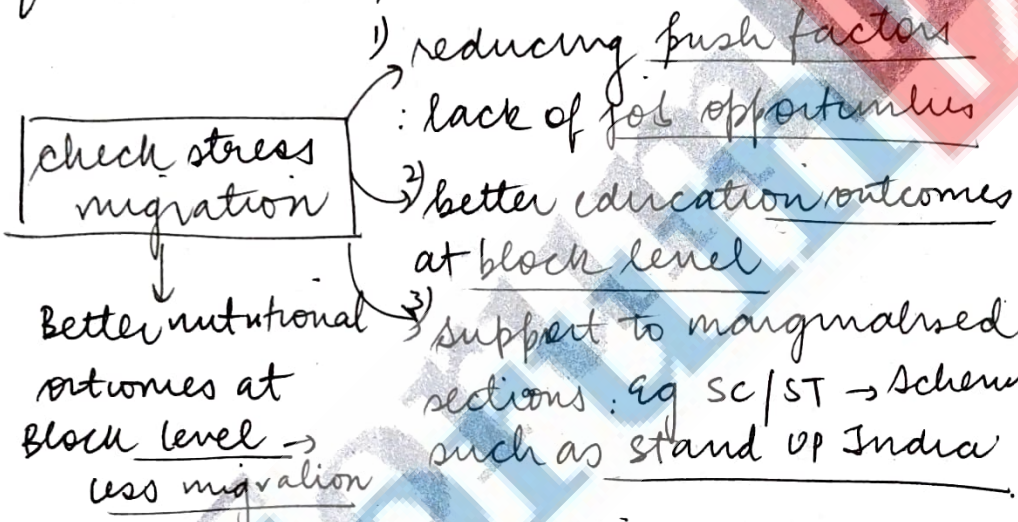 1) reducing push factors
: lack of job opportunities
check stress
migration
2) better education outcomes
at block level
3) support to marginalised
sections : eg SC/ST → Scheme
such as stand up India
Better nutritional
outcomes at
Block level →
less migration